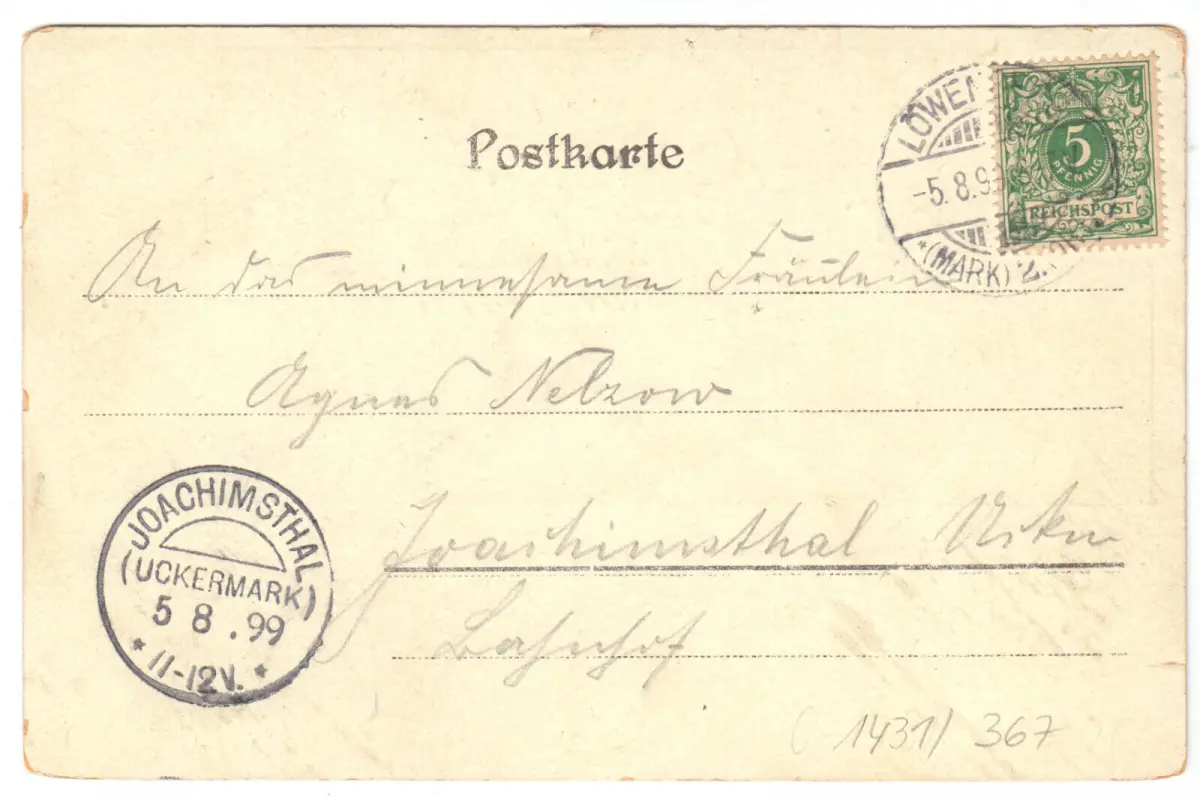 Postkarte
LÖWEN
-5.8.9
*(MARK) 2.
5
PFENNIG
REICHSPOST
An das minnesame Fräulein
Agnes Nelzow
Joachimsthal Uckm
Bahnhof
JOACHIMSTHAL
(UCKERMARK)
5 8 . 99
* 11-12V. *
1431/367